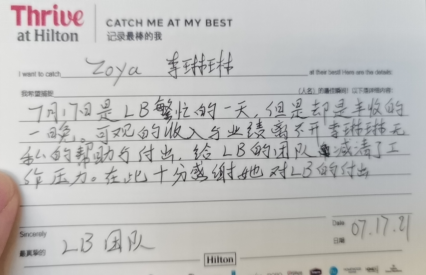 Thrive
at Hilton
CATCH ME AT MY BEST
记录最棒的我
I want to catch Zoya 李琳琳 at their best! Here are the details:
我希望捕捉
7月17日是LB繁忙的一天,但是却是丰收的
一晚。可观的收入与业绩离不开李琳琳无
私的帮助与付出,给LB的团队减清了工
作压力。在此十分感谢她对LB的付出
Sincerely
Date
最真挚的 LB团队
日期 07.17.21
Hilton